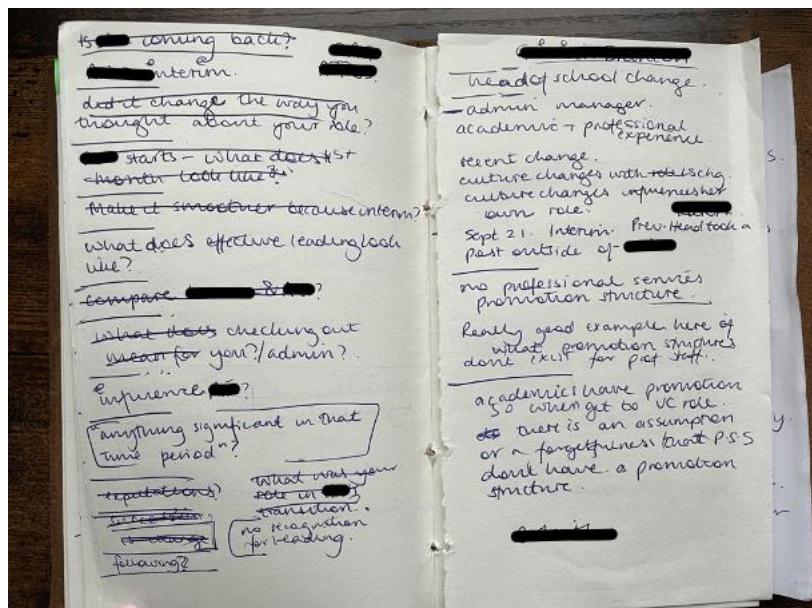 Is coming back?
interim.
did it change the way you
thought about your role?
starts - what does 1st
month look like?
Make it smoother because interim?
what does effective leading look
like?
compare & ?
what does checking out
mean for you?/admin?
influence ?
"anything significant in that
time period"?
expectations?
succession
following?
what was your
role in
transition.
no recognition
for leading.
head of school change.
- admin manager.
academic + professional
experience.
recent change.
culture changes with role
culture changes influences her
own role.
Sept 21. Interim. Prev. Head took a
post outside of
no professional services
promotion structure.
Really good example here of
what promotion structures
dont exist for prof staff.
academics have promotion
so when get to VC role.
there is an assumption
or a forgetfulness that P.S.S
dont have a promotion
structure.